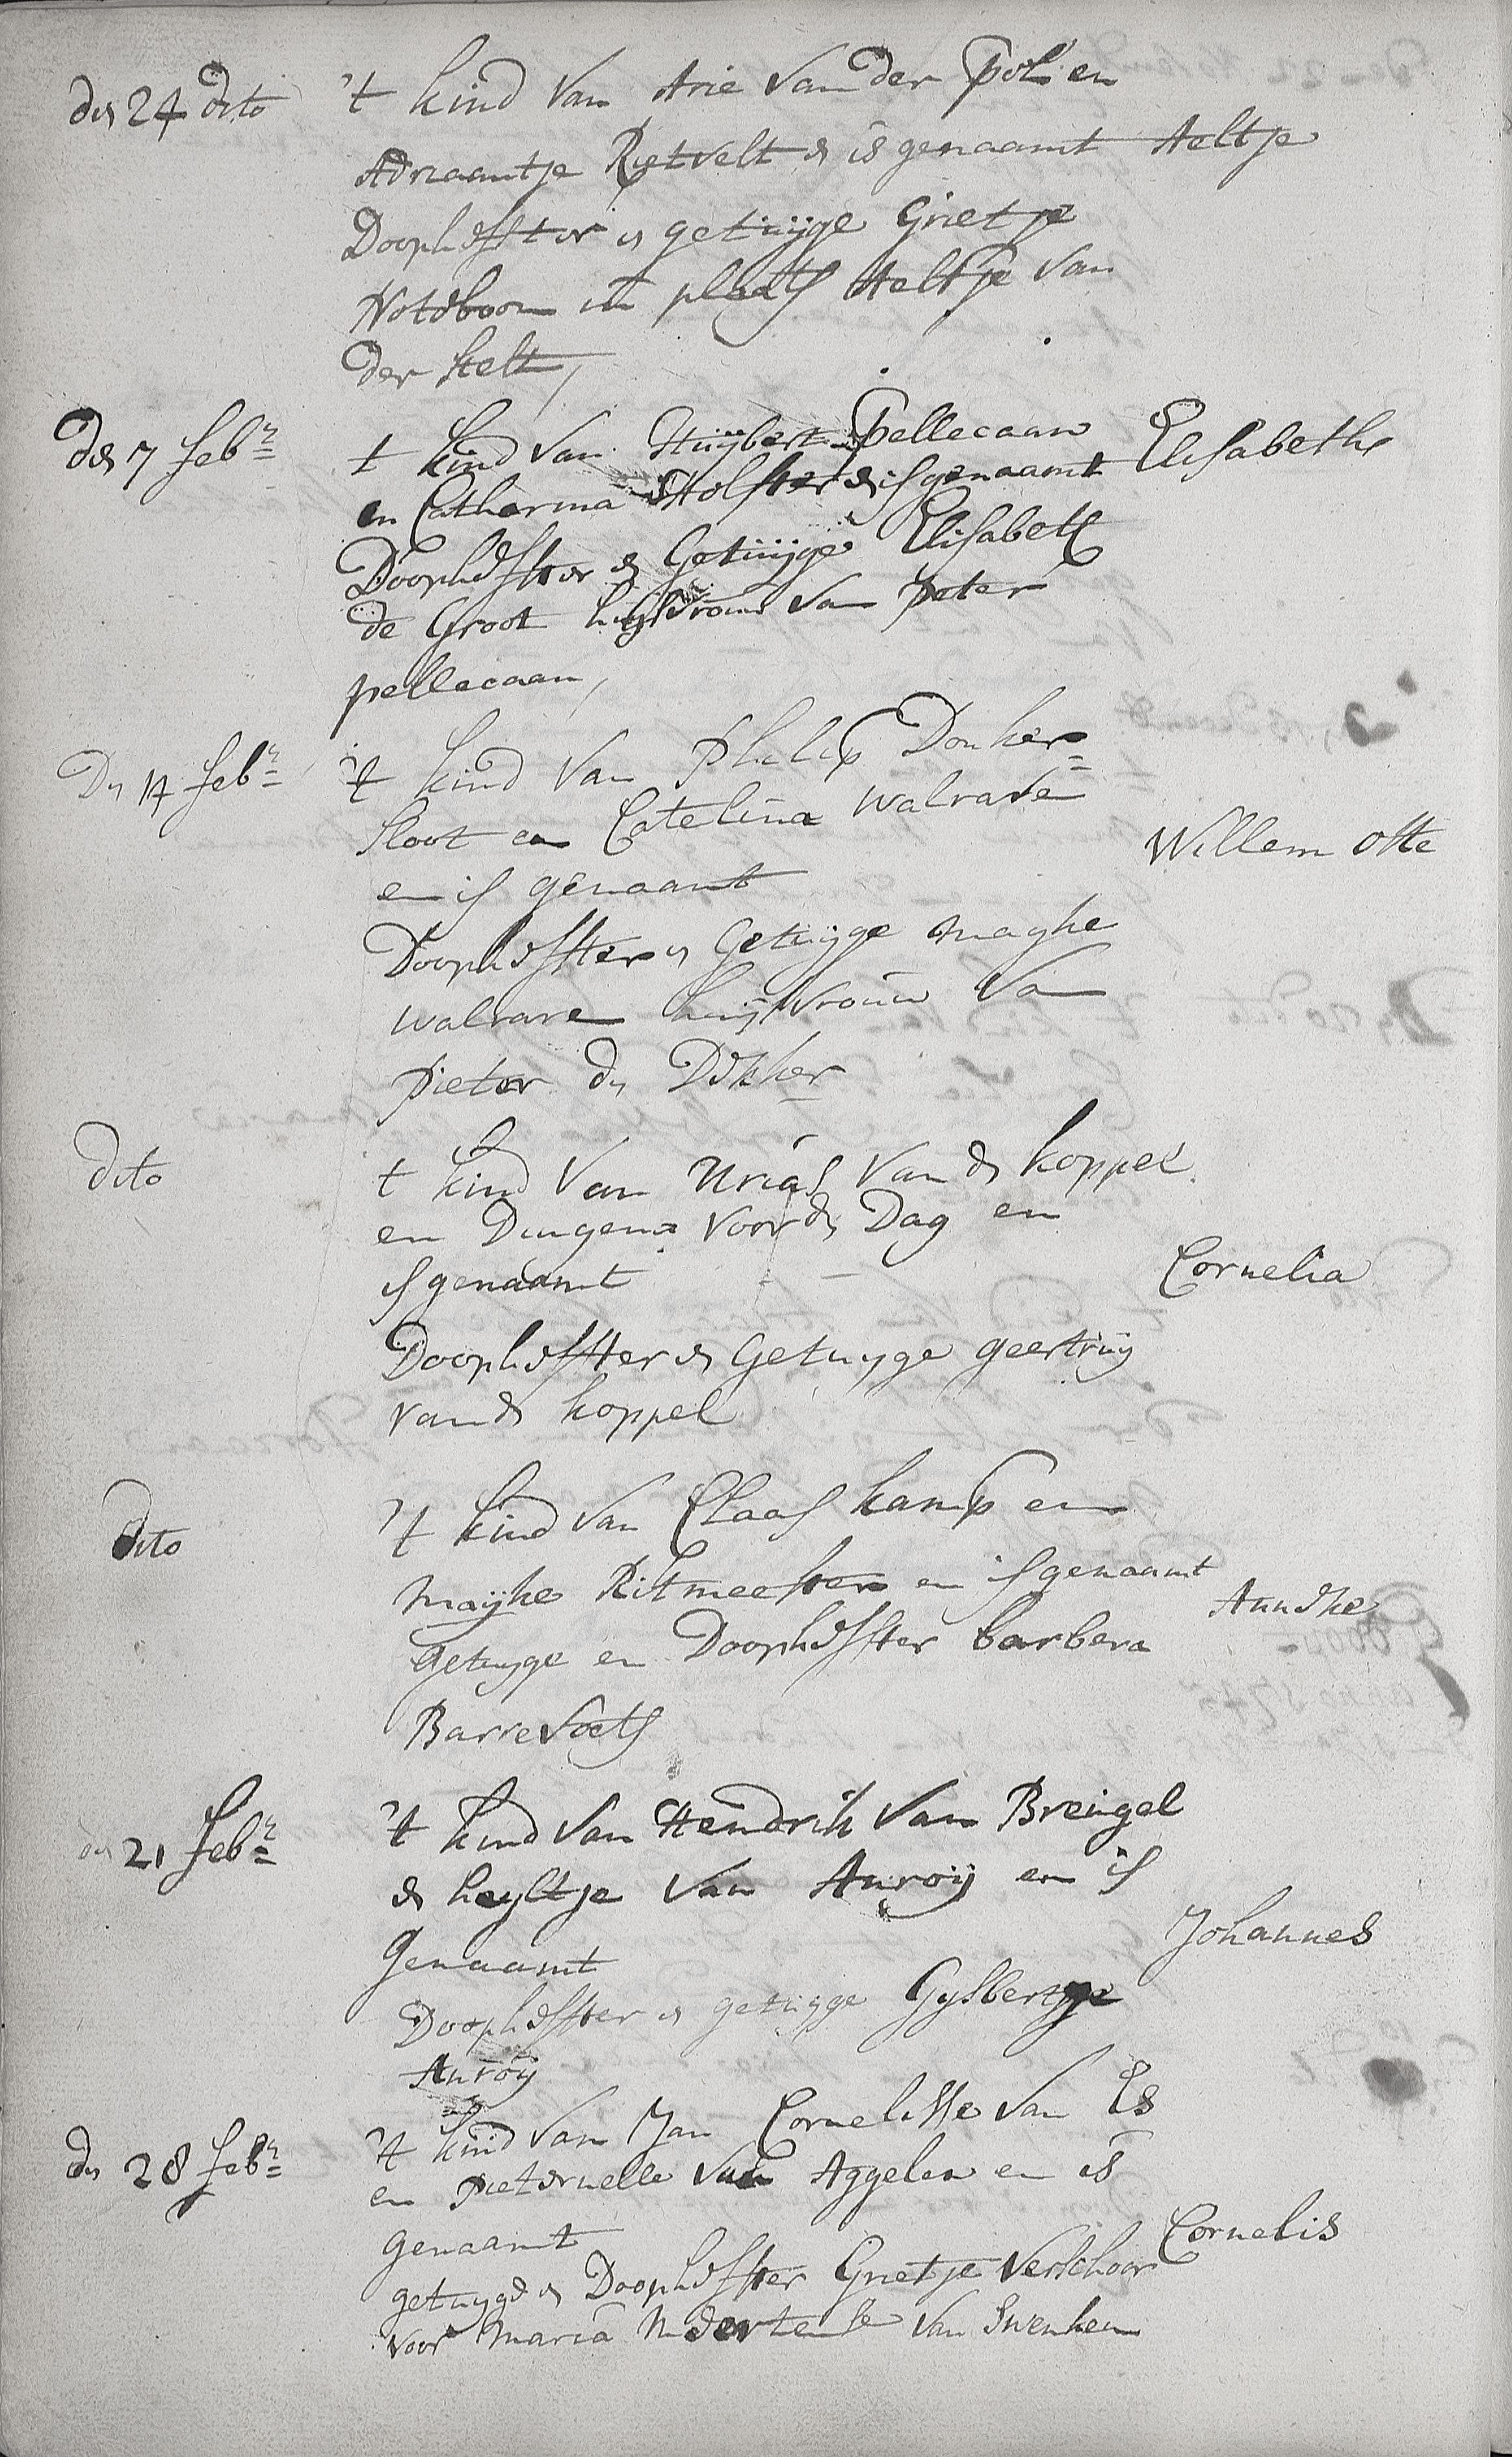 den 24 dito 't kind van Arie van der Pol en
Adriaantje Rietvelt en is genaamt Aeltje
Doophefster en getuijge Grietje
Noteboom in plaats Aeltje van
der Stelt,
den 7 febr: t kind van Huijbert Pellecaan
en Catharina Holster en is genaamt Elisabeth
Doophefster en Getuijge Elisabeth
de Groot huijsvrouw van Peter
pellecaan,
Den 14 febr: 't kind van Philip Donker=
sloot en Catelina walrave
en is genaamt Willem Otte
Doophefster en Getuijge Maghe
walrave huijsvrouw van
Pieter den Dekker
dito t kind van Urias van de koppel
en Dingena voor de Dag en
is genaamt Cornelia
Doophefster en Getuyge geertruij
van de koppel
dito 't kind van Claas kamp en
Maijke Ritmeester en is genaamt Anneke
Getuyge en Doophefster barbera
Barrevoets
den 21 febr: 't kind van Hendrik van Breugel
en heyltje van Anroij en is
Genaamt Johannes
Doophefster en getuijge Gysbertje
Anroij
den 28 febr: 't kind van Jan Cornelisse van Es
en Pieternelle van Aggelen en is
genaamt Cornelis
getuyge en Doophefster Grietje Verschoor
voor Maria van Swenken